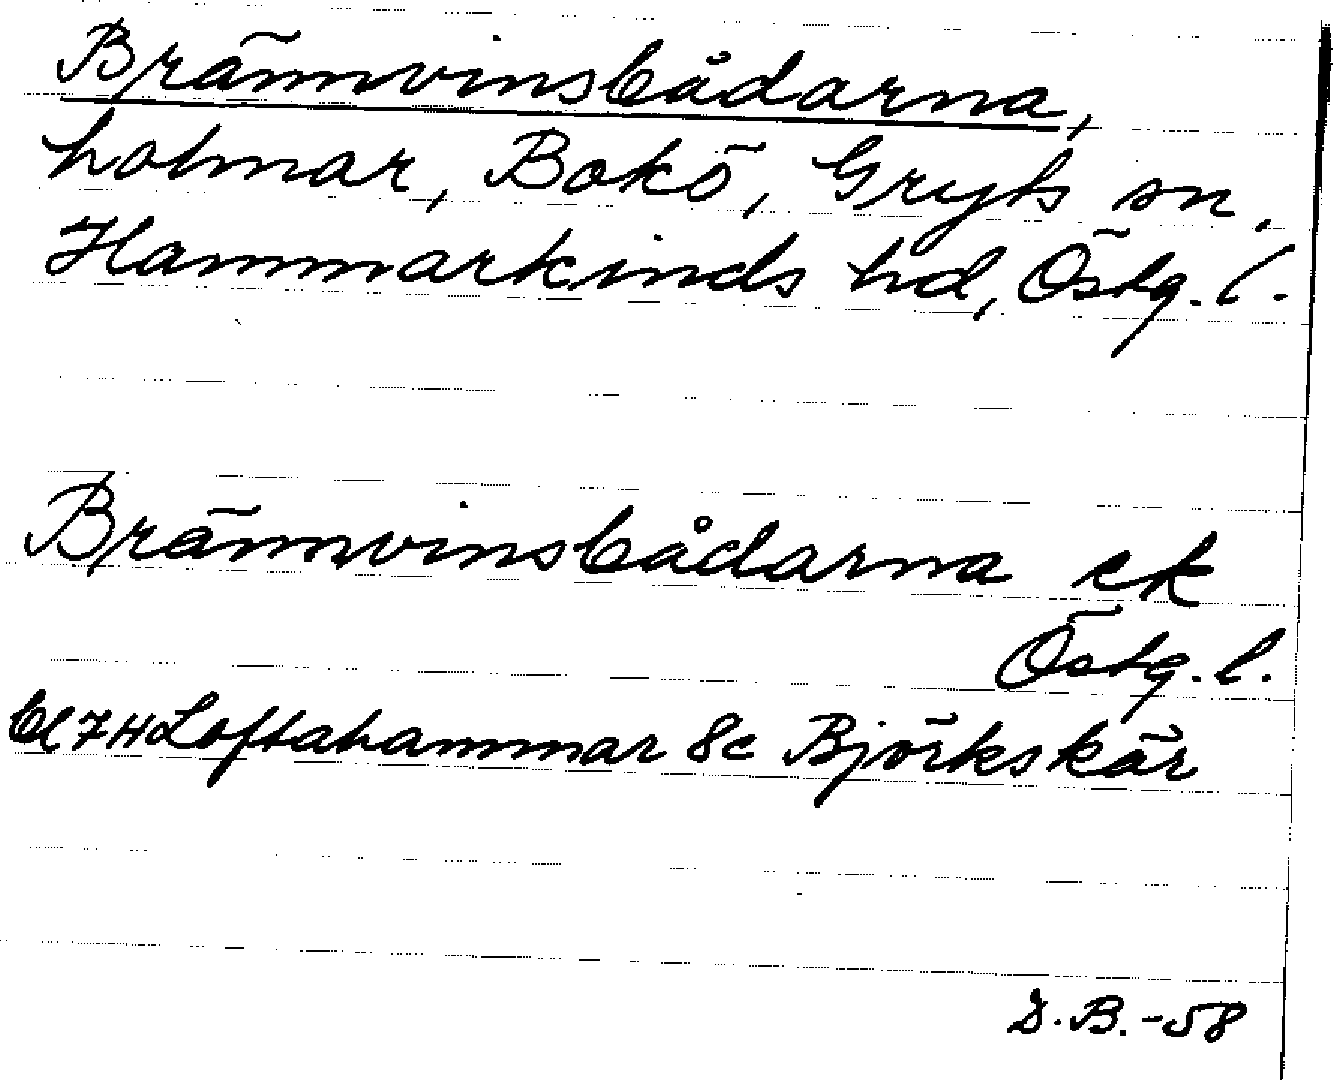 Brännvinsbådarna,
holmar, Bokö, Gryts sn,
Hammarkinds hd, Östg. l.
Brännvinsbådarna ek
Östg. l.
Bl 7H Loftahammar 8c Björkskär
D.B.-58